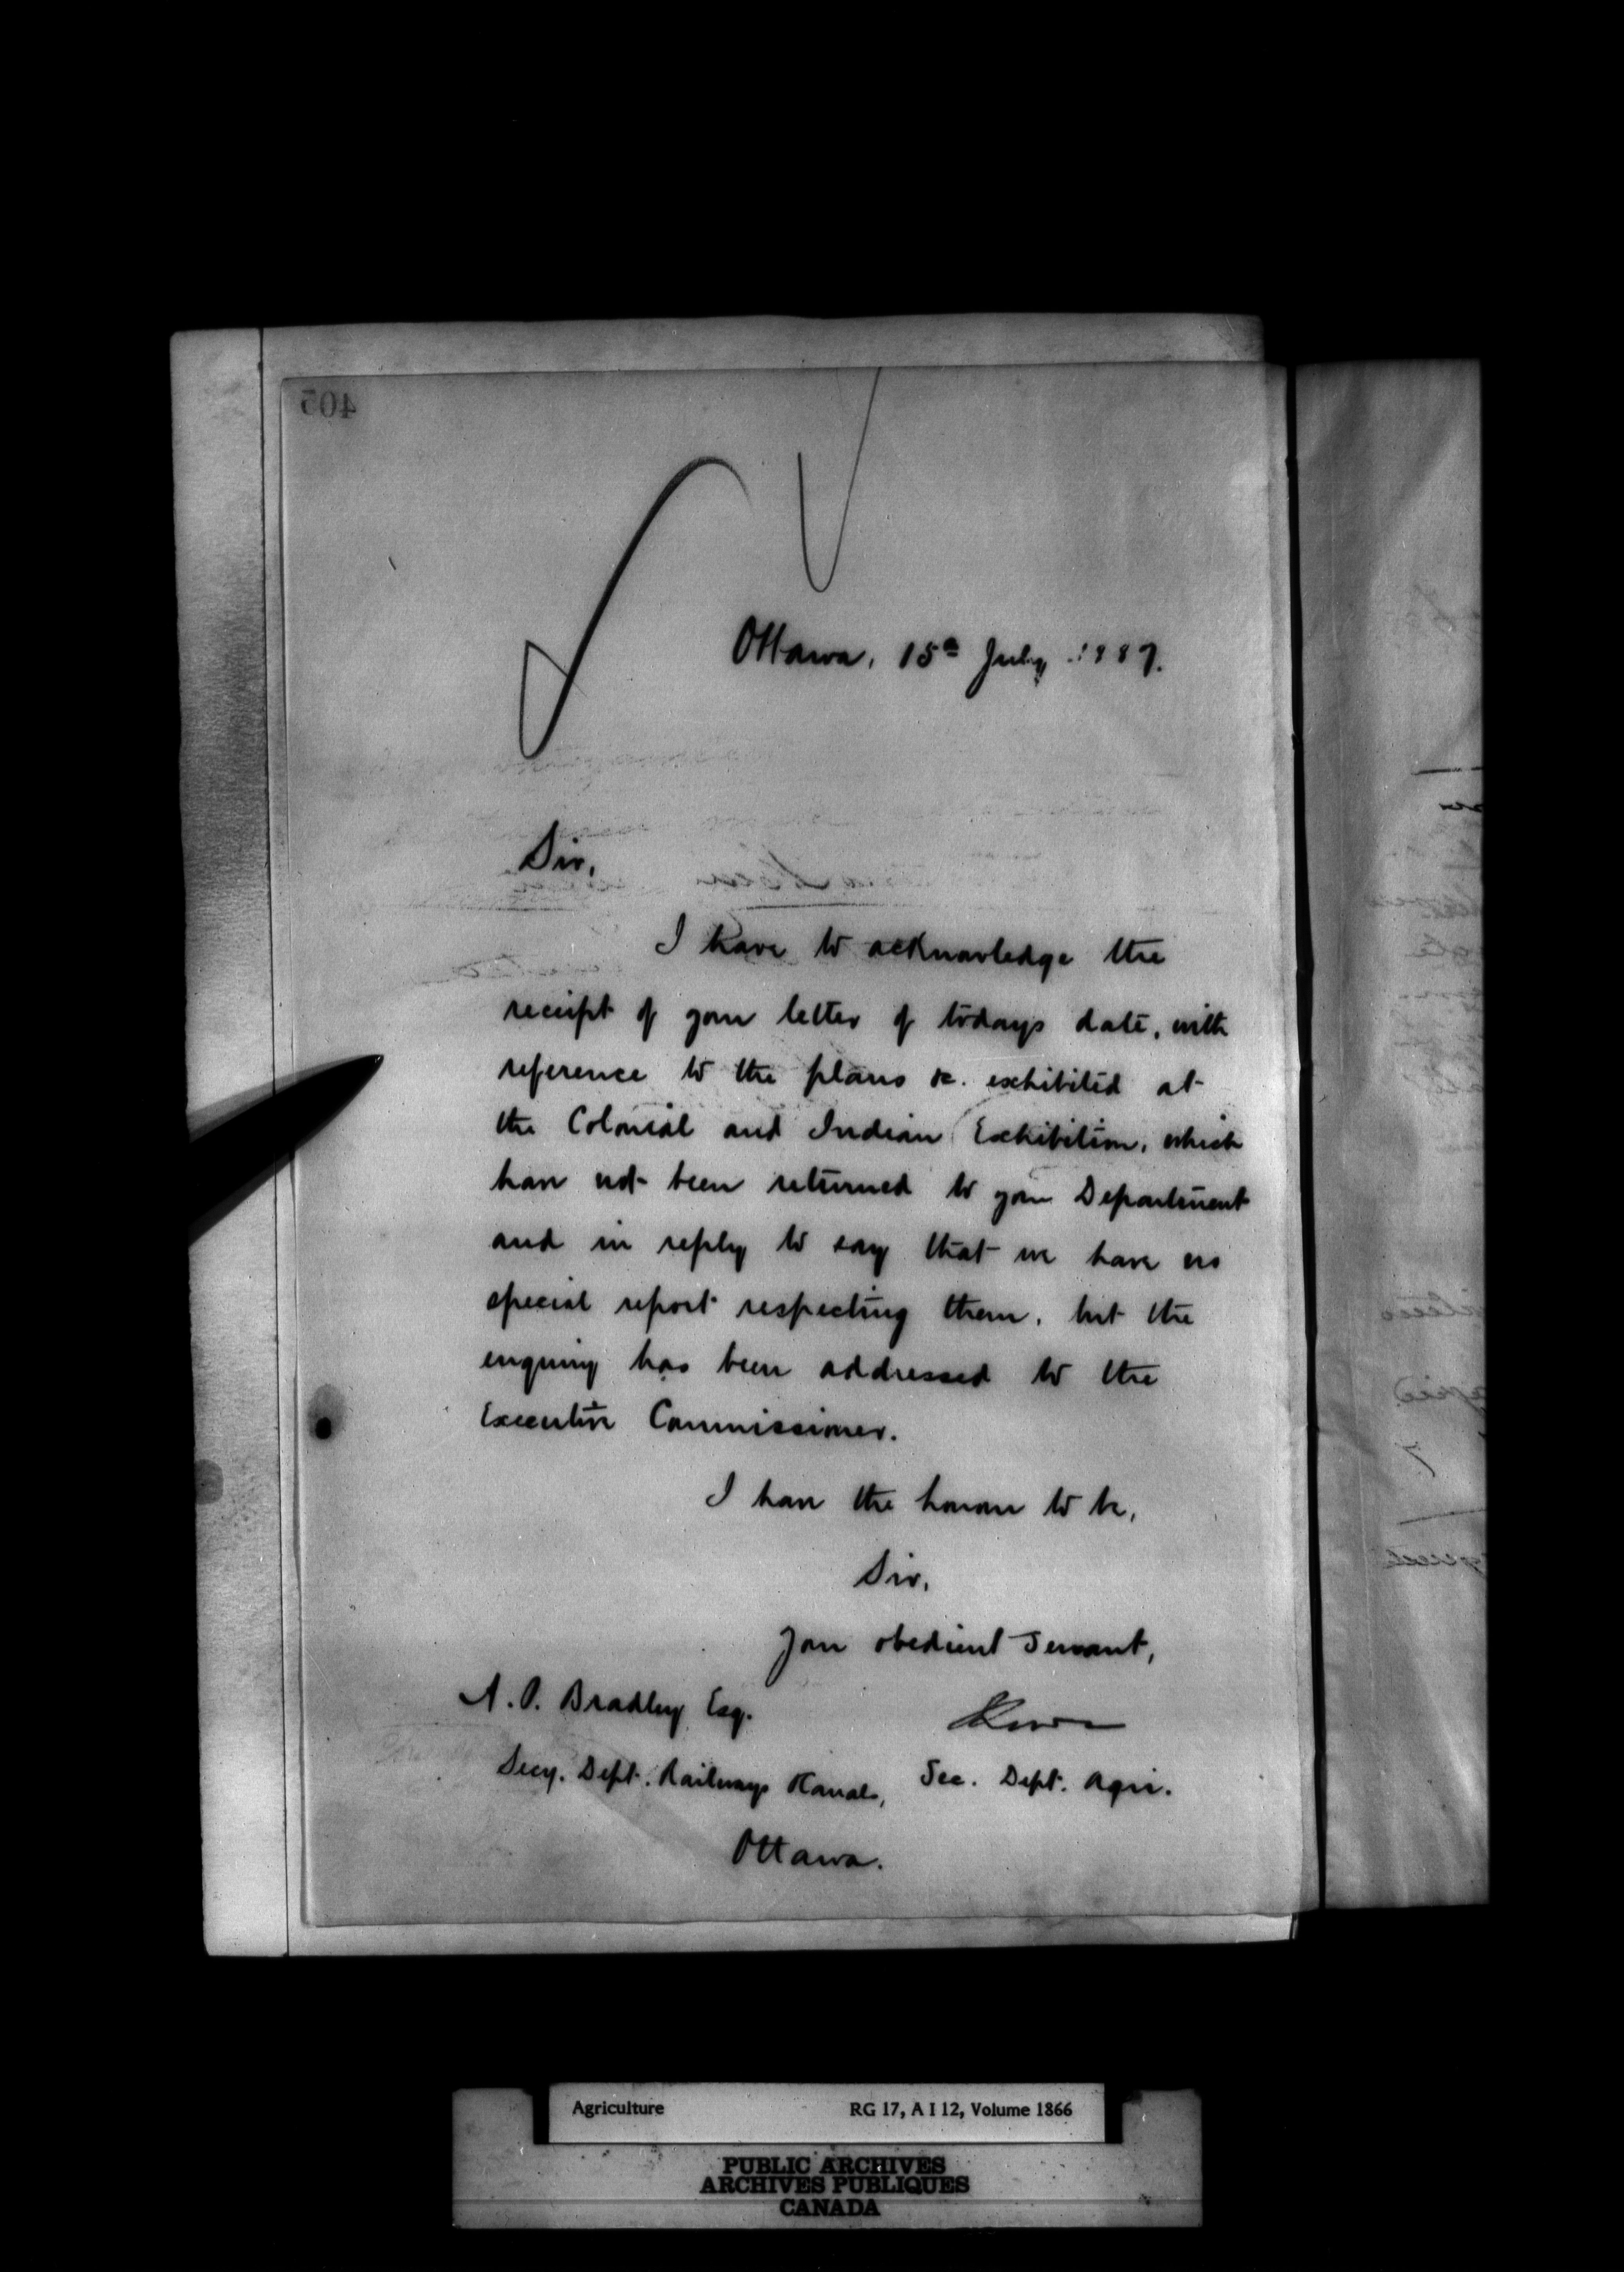 405
Ottawa, 15th July 1887.
Sir,
I have to acknowledge the
receipt of your letter of todays date, with
reference to the plans &c. exhibited at
the Colonial and Indian Exhibition, which
have not been returned to your Department
and in reply to say that we have no
special report respecting them, but the
enquiry has been addressed to the
Executive Commissioner.
I have the honour to be,
Sir,
Your obedient Servant,
A. P. Bradley Esq.
Secy. Dept. Railways & Canals,
Sec. Dept. Agri.
Ottawa.
Agriculture RG 17, A I 12, Volume 1866
PUBLIC ARCHIVES
ARCHIVES PUBLIQUES
CANADA